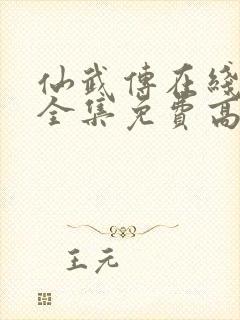 仙武傳在綫
全集免費高
王元